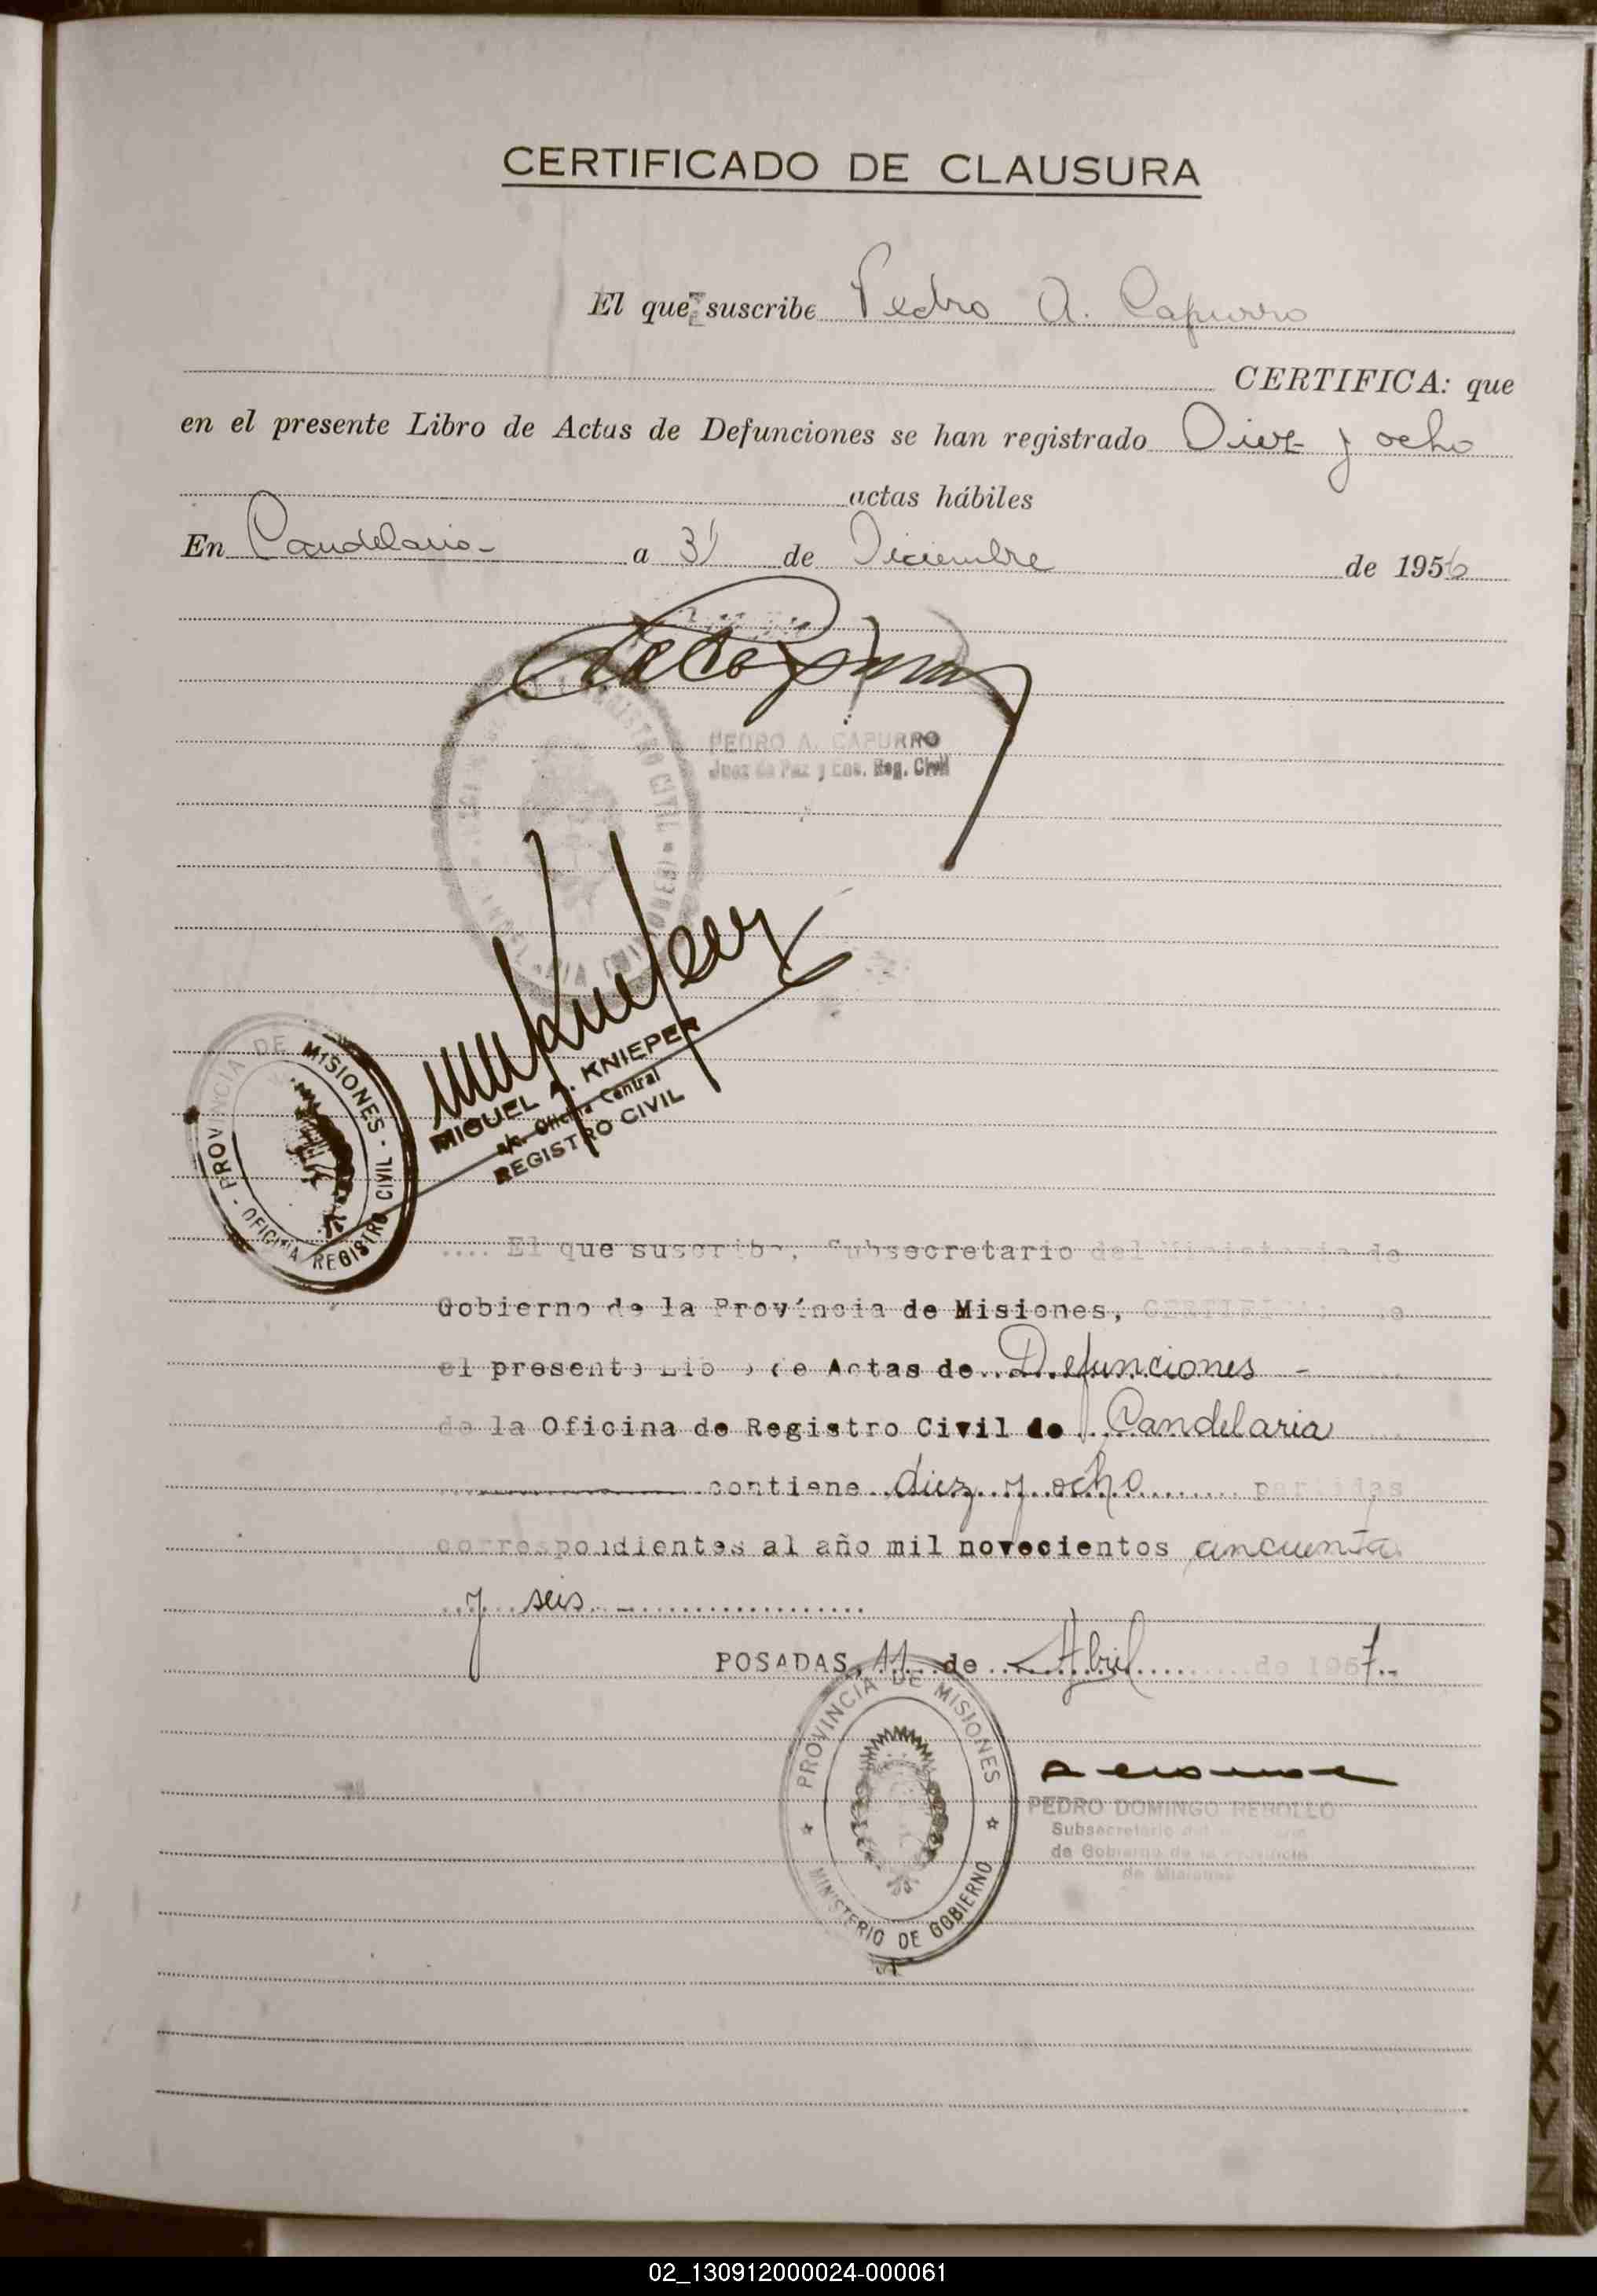 CERTIFICADO DE CLAUSURA
El que suscribe Pedro A. Capurro
CERTIFICA: que
en el presente Libro de Actas de Defunciones se han registrado Diez y ocho
actas hábiles
En Candelaria- a 31 de Diciembre de 1956
PEDRO A. CAPURRO
Juez de Paz y Enc. Reg. Civil
MIGUEL A. KNIEPER
a/c. Oficina Central
REGISTRO CIVIL
PROVINCIA DE MISIONES - OFICINA REGISTRO CIVIL -
.... El que suscribe, Subsecretario del Ministerio de
Gobierno de la Provincia de Misiones, CERTIFICA: que
el presente Libro de Actas de Defunciones -
de la Oficina de Registro Civil de Candelaria
contiene diez y ocho partidas
correspondientes al año mil novecientos cincuenta
y seis.-
POSADAS, 11 de Abril de 1957.-
PROVINCIA DE MISIONES
MINISTERIO DE GOBIERNO
PEDRO DOMINGO REBOLLO
Subsecretario del
de Gobierno de la Provincia
de Misiones
K
L
M
N
O
P
Q
R
S
T
U
V
W
X
Y
Z
02_130912000024-000061